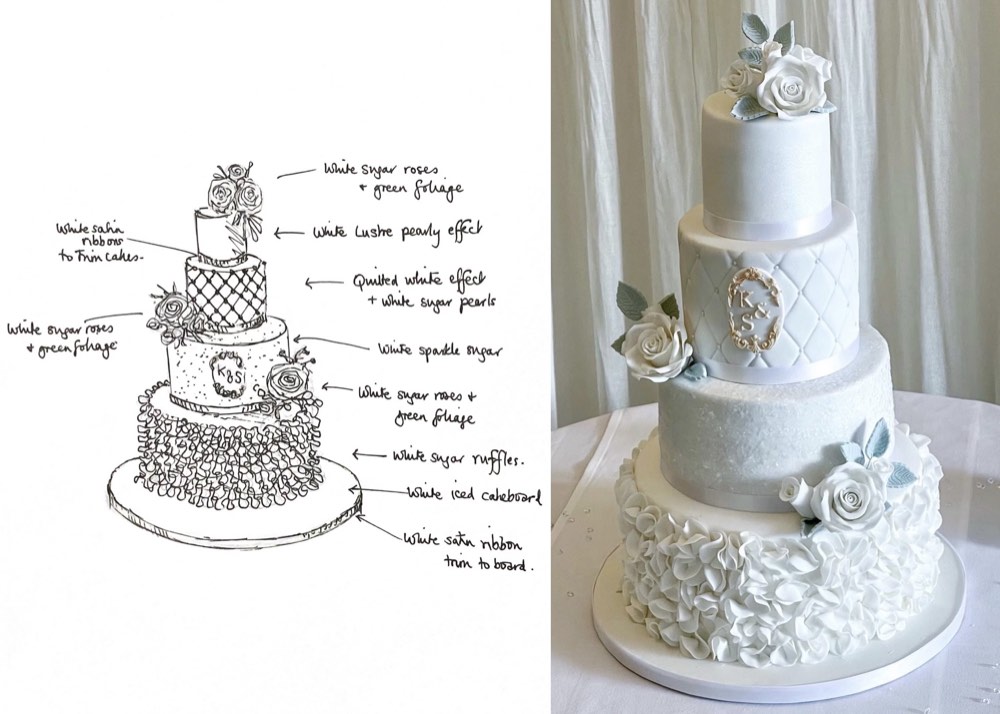 White sugar roses
+ green foliage
White satin
ribbons
to Trim cakes.
White Lustre pearly effect
Quilted white effect
+ white sugar pearls
White sugar roses
+ green foliage
White sparkle sugar
K&S
White sugar roses +
green foliage
White sugar ruffles.
White iced cakeboard
White satin ribbon
trim to board.
K
&
S